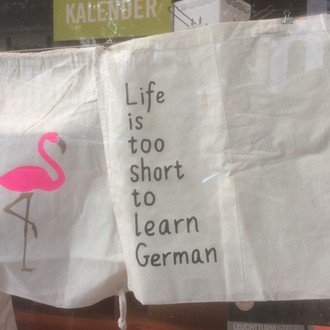 KALENDER
Life
is
too
short
to
learn
German